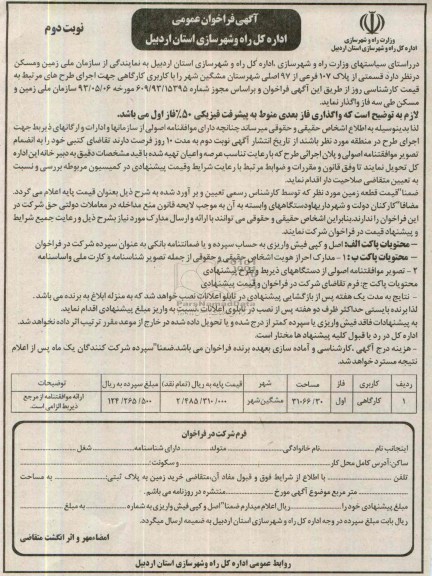 آگهی فراخوان عمومی
اداره کل راه و شهرسازی استان اردبیل
نوبت دوم
وزارت راه و شهرسازی
اداره کل راه و شهرسازی استان اردبیل
درراستای سیاستهای وزارت راه و شهرسازی ،اداره کل راه و شهرسازی استان اردبیل به نمایندگی از سازمان ملی زمین ومسکن
درنظر دارد قسمتی از پلاک ۱۰۷ فرعی از ۹۷ اصلی شهرستان مشگین شهر را با کاربری کارگاهی جهت اجرای طرح های مرتبط به
قیمت کارشناسی روز از طریق این آگهی فراخوان و براساس مجوز شماره ۶۰۹/۹۳/۱۵۳۹۵ مورخه ۹۳/۰۵/۰۶ سازمان ملی زمین و
مسکن طی سه فاز واگذار نماید.
لازم به توضیح است که واگذاری فاز بعدی منوط به پیشرفت فیزیکی ۵۰٪ فاز اول می باشد.
لذا بدینوسیله به اطلاع اشخاص حقیقی و حقوقی میرساند چنانچه دارای موافقت اصولی از سازمانها و ادارات و ارگانهای ذیربط جهت
اجرای طرح در منطقه مورد نظر باشند از تاریخ انتشار آگهی نوبت دوم به مدت ۱۰ روز فرصت دارند تقاضای کتبی خود را به انضمام
تصویر موافقتنامه اصولی و پلان اجرائی طرح که با رعایت تناسب عرصه و اعیان تهیه شده با قید مشخصات دقیق به دبیر خانه این اداره
کل تحویل نمایند تا وفق قانون و مقررات و ضوابط مرتبط با رعایت شرایط وقیمت پیشنهادی در کمیسیون مربوطه بررسی و نسبت
به تعیین متقاضی صلاحیت دار اقدام نماید.
ضمنا"قیمت قطعه زمین مورد نظر که توسط کارشناس رسمی تعیین و بر آورد شده به شرح ذیل بعنوان قیمت پایه اعلام می گردد.
مضافا"کارکنان دولت و شهرداریهاودستگاههای وابسته به آن به موجب لایحه قانون منع مداخله در معاملات دولتی حق شرکت در
این فراخوان را ندارند.بنابراین اشخاص حقیقی و حقوقی می توانند با ارائه و ارسال مدارک مورد نیاز بشرح ذیل و رعایت جمیع شرایط
و پیشنهاد قیمت در فراخوان شرکت نمایند.
– محتویات پاکت الف: اصل و کپی فیش واریزی به حساب سپرده و یا ضمانتنامه بانکی به عنوان سپرده شرکت در فراخوان
– محتویات پاکت ب: ۱ - مدارک احراز هویت اشخاص حقیقی و حقوقی از جمله تصویر شناسنامه و کارت ملی واساسنامه
۲ - تصویر موافقتنامه اصولی از دستگاههای ذیربط وپلان پیشنهادی
محتویات پاکت ج: فرم تقاضای شرکت در فراخوان و قیمت پیشنهادی
- نتایج به مدت یک هفته پس از بازگشایی پیشنهادی در تابلو اعلانات نصب خواهد شد که به منزله ابلاغ به برنده می باشد.
لذا برنده بایستی حداکثر ظرف دو هفته پس از نصب در تابلوی اعلانات نسبت به واریز مبلغ پیشنهادی اقدام نماید.
به پیشنهادات فاقد فیش واریزی یا سپرده کمتر از درج شده و یا تحویل داده شده در خارج از موعد مقرر ترتیب اثر داده نخواهد شد.
اداره کل در رد یا قبول کلیه پیشنهاد ها مختار است.
- هزینه درج آگهی ،کارشناسی و آماده سازی بعهده برنده فراخوان می باشد.ضمنا"سپرده شرکت کنندگان یک ماه پس از اعلام
نتیجه مسترد خواهد شد.
ردیف کاربری فاز مساحت شهر قیمت پایه به ریال (تمام نقد) مبلغ سپرده به ریال توضیحات
۱ کارگاهی اول ۳۱۰۶۶/۳۰ مشگین‌شهر ۲/۴۸۵/۳۱۰/۰۰۰ ۱۲۴/۲۶۵/۵۰۰ ارائه موافقتنامه از مرجع ذیربط الزامی است.
فرم شرکت در فراخوان
اینجانب نام نام خانوادگی متولد دارای شناسنامه شغل
ساکن:آدرس کامل محل کار و سکونت:
تلفن با اطلاع از شرایط فوق و قبول مفاد آن،متقاضی خرید زمین به پلاک ثبتی: به مساحت
متر مربع موضوع آگهی مورخ منتشره در روزنامه می باشم.
مبلغ پیشنهادی خود را ریال اعلام میدارم ضمنا"اصل و کپی فیش واریزی به شماره به مبلغ
ریال بابت مبلغ سپرده در وجه اداره کل راه و شهرسازی استان اردبیل به ضمیمه ارسال میگردد.
امضاءمهر و اثر انگشت متقاضی
روابط عمومی اداره کل راه و شهرسازی استان اردبیل